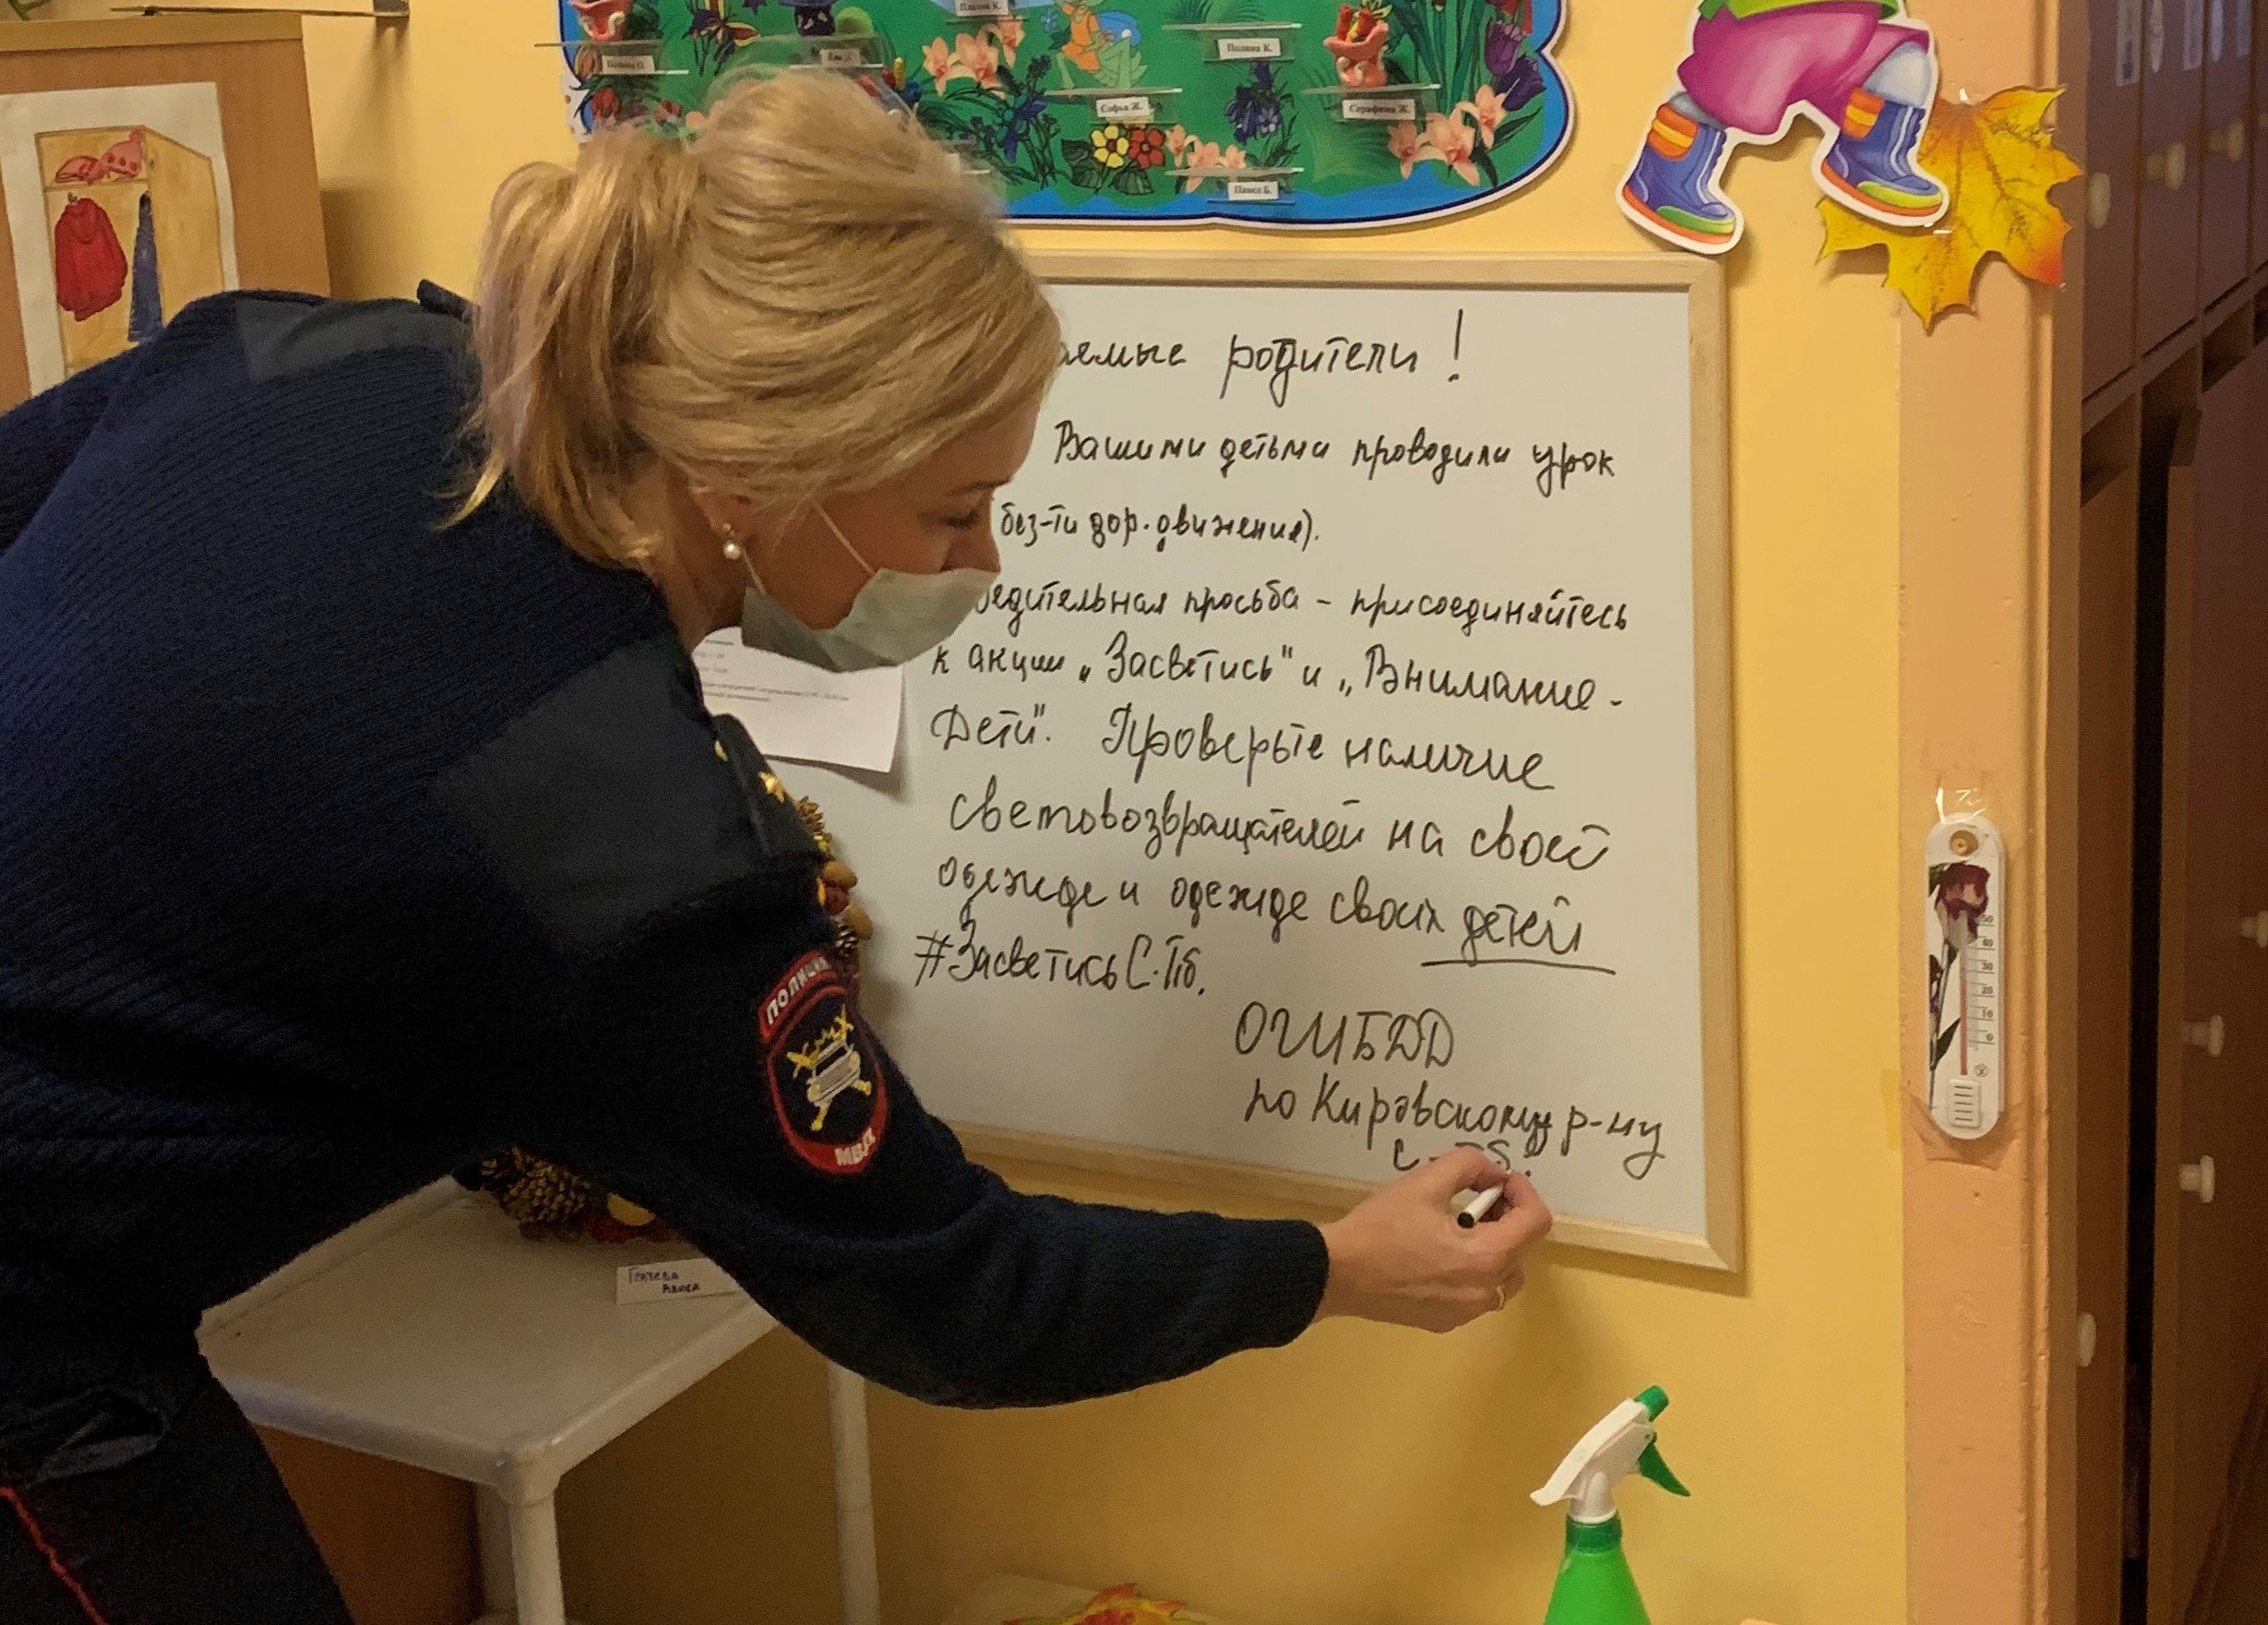 Полина К.
Софья Ж.
Серафима Ж.
Павел Б.
аемые родители!
Вашими детьми проводили урок
без-ти дор. движения).
бедительная просьба - присоединяйтесь
к акции „Засветись" и „Внимание -
Дети". Проверьте наличие
световозвращателей на своей
одежде и одежде своих детей
#ЗасветисьС.Пб.
ОГИБДД
по Кировскому р-ну
С-Пб.
ПОЛИЦИЯ
МВД
50
40
30
20
10
0